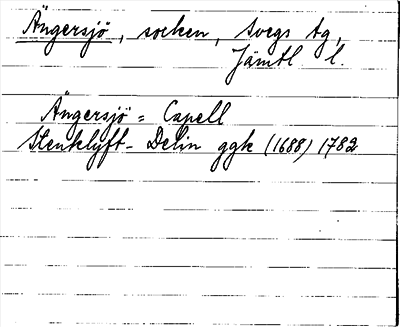 Ängersjö, socken, Svegs tg,
Jämtl l.
Ängersjö = Capell
Stenklyft - Delin ggk (1688) 1782